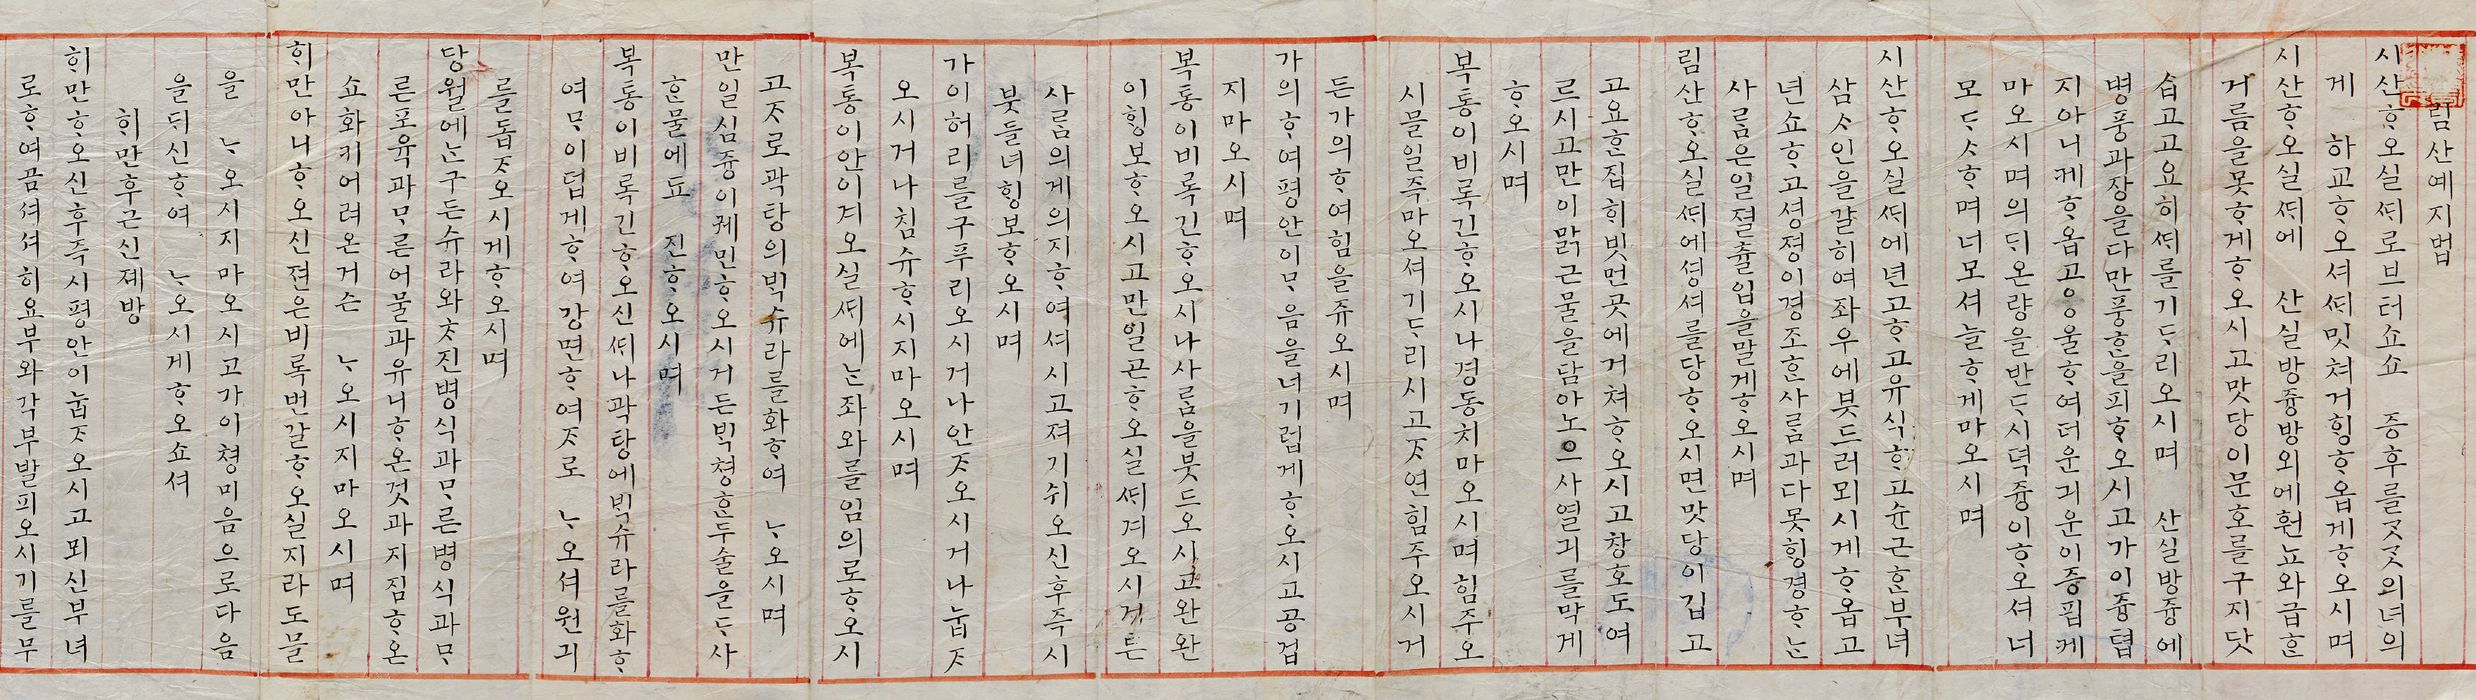 림산예지법
시산ᄒᆞ오실ᄯᆡ로브터쇼쇼 증후를ᄀᆞᆺᄀᆞᆺ의녀의
게 하교ᄒᆞ오셔ᄯᆡ밋쳐거ᄒᆡᆼᄒᆞ옵게ᄒᆞ오시며
시산ᄒᆞ오실ᄯᆡ에 산실방즁방외에훤뇨와급ᄒᆞᆫ
거름을못ᄒᆞ게ᄒᆞ오시고맛당이문호를구지닷
습고고요히ᄯᆡ를기ᄃᆞ리오시며 산실방즁에
병풍과장을다만풍ᄒᆞᆫ을피ᄒᆞ오시고가이즁텹
지아니케ᄒᆞ옵고옹울ᄒᆞ여더운긔운이증핍케
마오시며의ᄃᆡ온량을반ᄃᆞ시뎍즁이ᄒᆞ오셔너
모ᄃᆞᄉᆞᄒᆞ며너모셔늘ᄒᆞ게마오시며
시산ᄒᆞ오실ᄯᆡ에년고ᄒᆞ고유식ᄒᆞ고슌근ᄒᆞᆫ부녀
삼ᄉᆞ인을ᄀᆞᆯ히여좌우에븟드러뫼시게ᄒᆞ옵고
년쇼ᄒᆞ고셩졍이경조ᄒᆞᆫ사ᄅᆞᆷ과다못ᄒᆡᆼ경ᄒᆞᄂᆞᆫ
사ᄅᆞᆷ은일졀츌입을말게ᄒᆞ오시며
림산ᄒᆞ오실ᄯᆡ에셩셔를당ᄒᆞ오시면맛당이깁고
고요ᄒᆞᆫ집ᄒᆡ빗먼곳에거쳐ᄒᆞ오시고창호도여
르시고만이맑근물을담아노으사열긔를막게
ᄒᆞ오시며
복통이비록긴ᄒᆞ오시나경동치마오시며힘주오
시믈일주마오셔기ᄃᆞ리시고ᄌᆞ연힘주오시거
든가의ᄒᆞ여힘을쥬오시며
가의ᄒᆞ여평안이ᄆᆞ음을너기럽게ᄒᆞ오시고공겁
지마오시며
복통이비록긴ᄒᆞ오시나사ᄅᆞᆷ을븟드오시고완완
이ᄒᆡᆼ보ᄒᆞ오시고만일곤ᄒᆞ오실ᄯᆡ계오시거든
사ᄅᆞᆷ의게의지ᄒᆞ여셔시고져기쉬오신후즉시
븟들녀ᄒᆡᆼ보ᄒᆞ오시며
가이허리를구푸리오시거나안ᄌᆞ오시거나눕ᄌᆞ
오시거나침슈ᄒᆞ시지마오시며
복통이안이겨오실ᄯᆡ에ᄂᆞᆫ좌와를임의로ᄒᆞ오시
고ᄌᆞ로곽탕의ᄇᆡᆨ슈라를화ᄒᆞ여 ᄂᆞ오시며
만일심즁이궤민ᄒᆞ오시거든ᄇᆡᆨ쳥ᄒᆞᆫ두술을ᄃᆞ사
ᄒᆞᆫ물에됴 진ᄒᆞ오시며
복통이비록긴ᄒᆞ오신ᄯᆡ나곽탕에ᄇᆡᆨ슈라를화ᄒᆞ
여ᄆᆞ이덥게ᄒᆞ여강면ᄒᆞ여ᄌᆞ로 ᄂᆞ오셔원긔
를돕ᄌᆞ오시게ᄒᆞ오시며
당월에ᄂᆞᆫ구든슈라와ᄎᆞ진병식과ᄆᆞ른병식과ᄆᆞ
른포육과ᄆᆞ른어물과유니ᄒᆞ온것과지짐ᄒᆞ온
쇼화키어려온거슨 ᄂᆞ오시지마오시며
ᄒᆡ만아니ᄒᆞ오신젼은비록번갈ᄒᆞ오실지라도믈
을 ᄂᆞ오시지마오시고가이쳥미음으로다음
을ᄃᆡ신ᄒᆞ여 ᄂᆞ오시게ᄒᆞ오쇼셔
ᄒᆡ만후근신졔방
ᄒᆡ만ᄒᆞ오신후즉시평안이눕ᄌᆞ오시고뫼신부녀
로ᄒᆞ여곰셔셔히요부와각부발피오시기를무